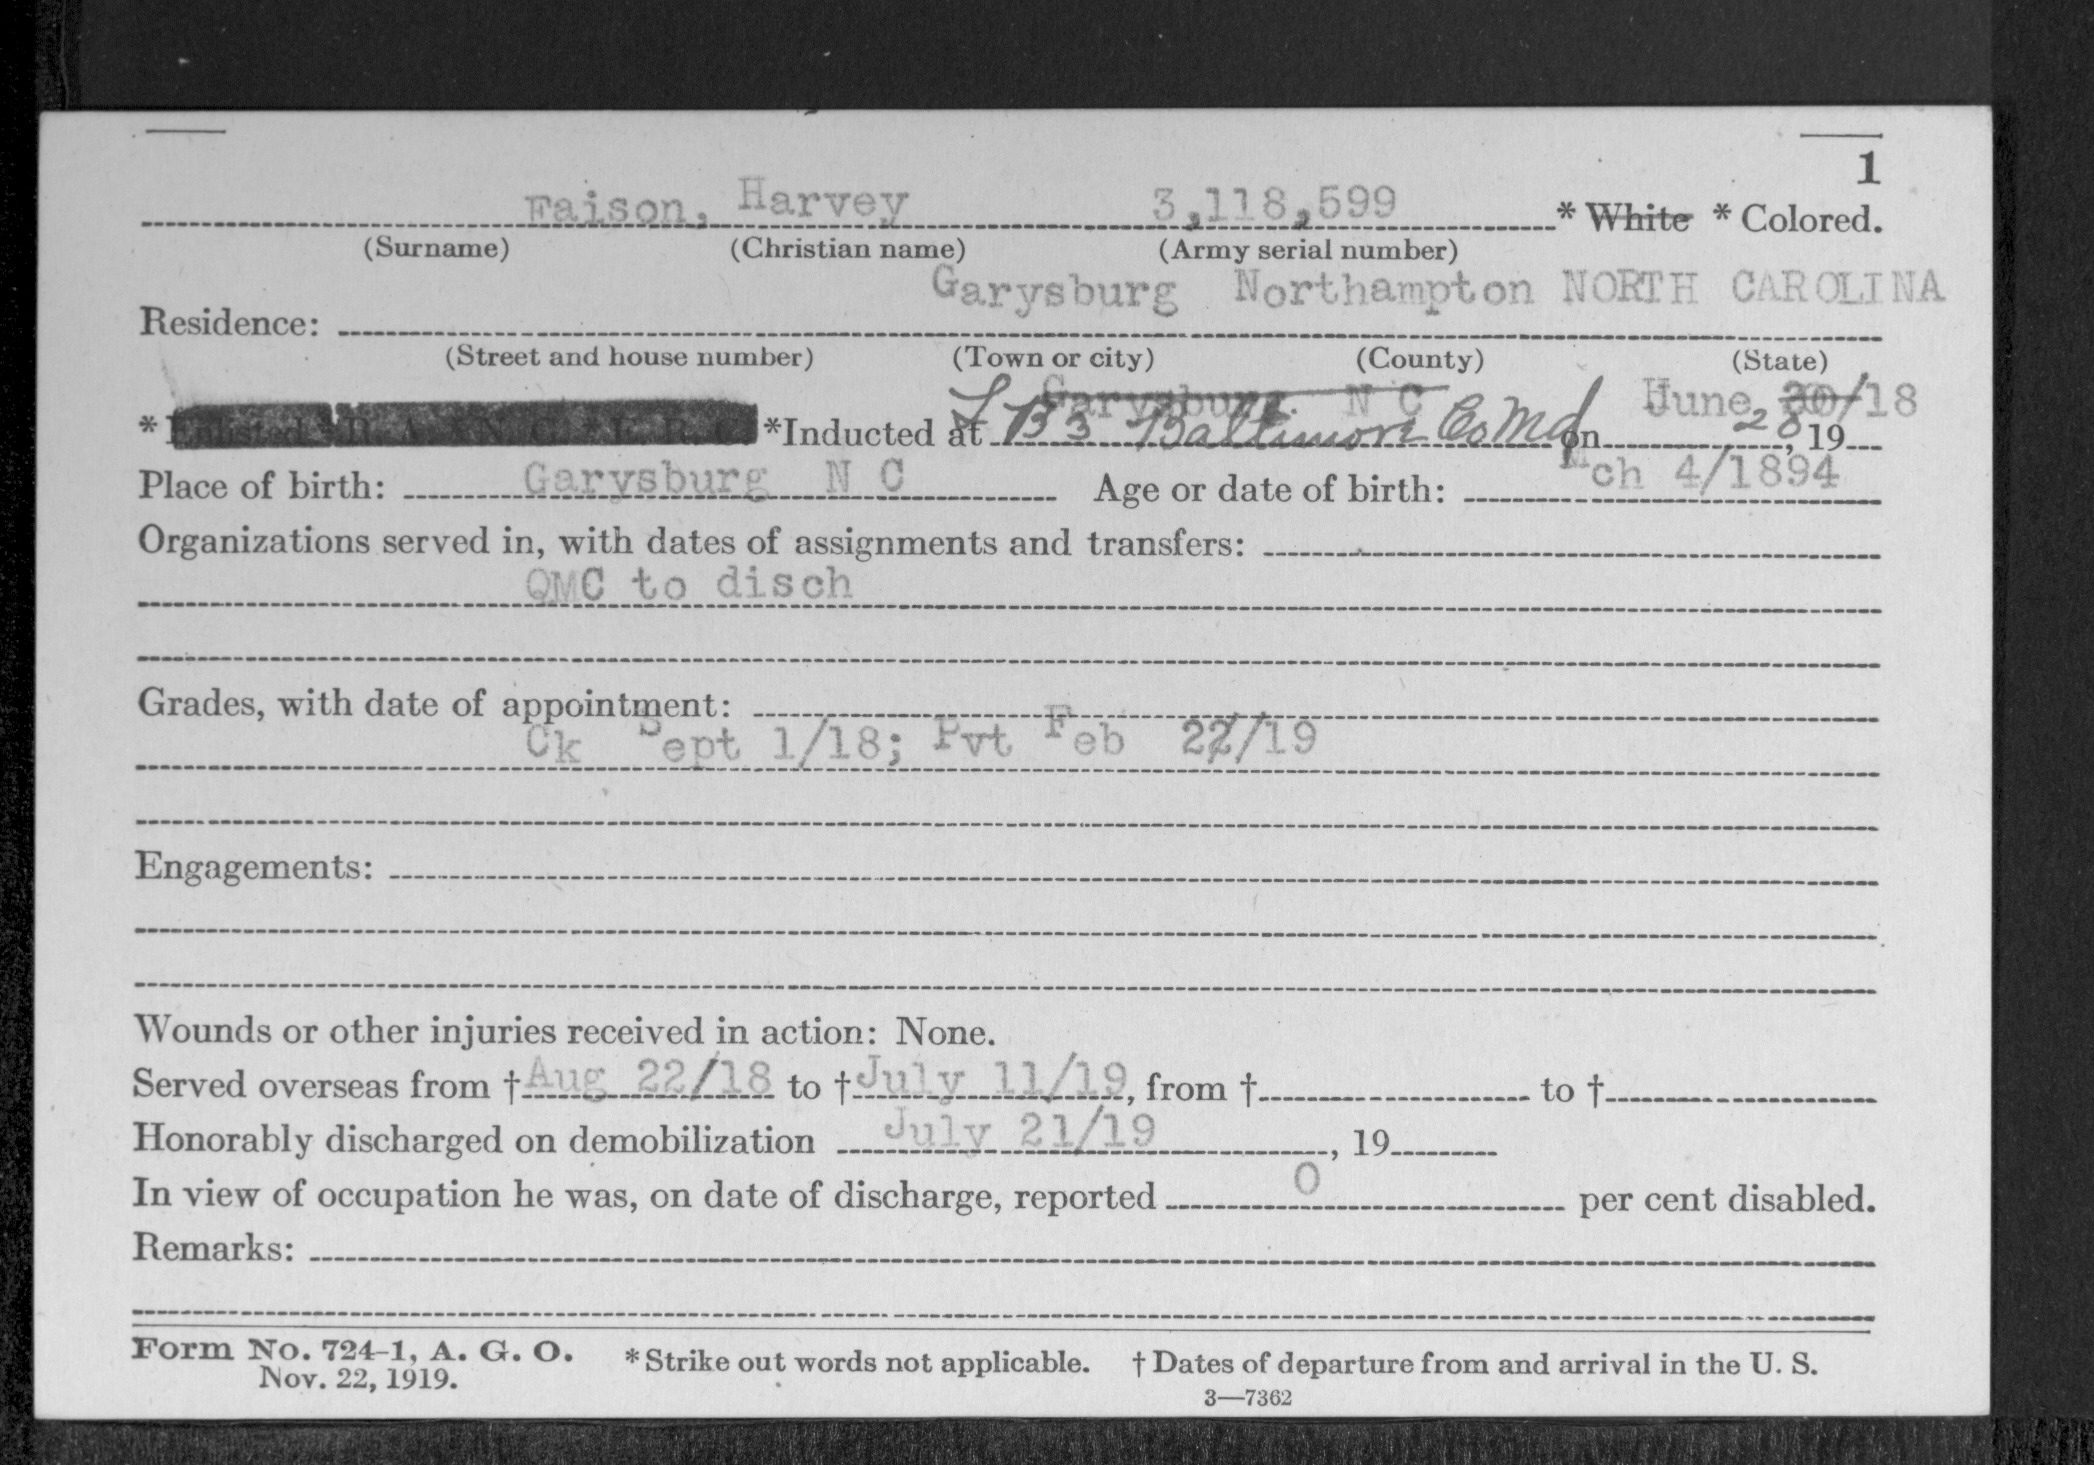 1
Faison, Harvey 3,118,599 * White * Colored.
(Surname) (Christian name) (Army serial number)
Garysburg Northampton NORTH CAROLINA
Residence:
(Street and house number) (Town or city) (County) (State)
Garysburg N C June 30/18
* Enlisted * R. A. * N. G. * E. R. C. *Inducted at L B 3 Baltimore Co Md on 28, 19
Place of birth: Garysburg N C Age or date of birth: Mch 4/1894
Organizations served in, with dates of assignments and transfers:
QMC to disch
Grades, with date of appointment:
Ck Sept 1/18; Pvt Feb 22/19
Engagements:
Wounds or other injuries received in action: None.
Served overseas from † Aug 22/18 to † July 11/19, from † to †
Honorably discharged on demobilization July 21/19, 19
In view of occupation he was, on date of discharge, reported 0 per cent disabled.
Remarks:
Form No. 724-1, A. G. O. * Strike out words not applicable. † Dates of departure from and arrival in the U. S.
Nov. 22, 1919.
3—7362